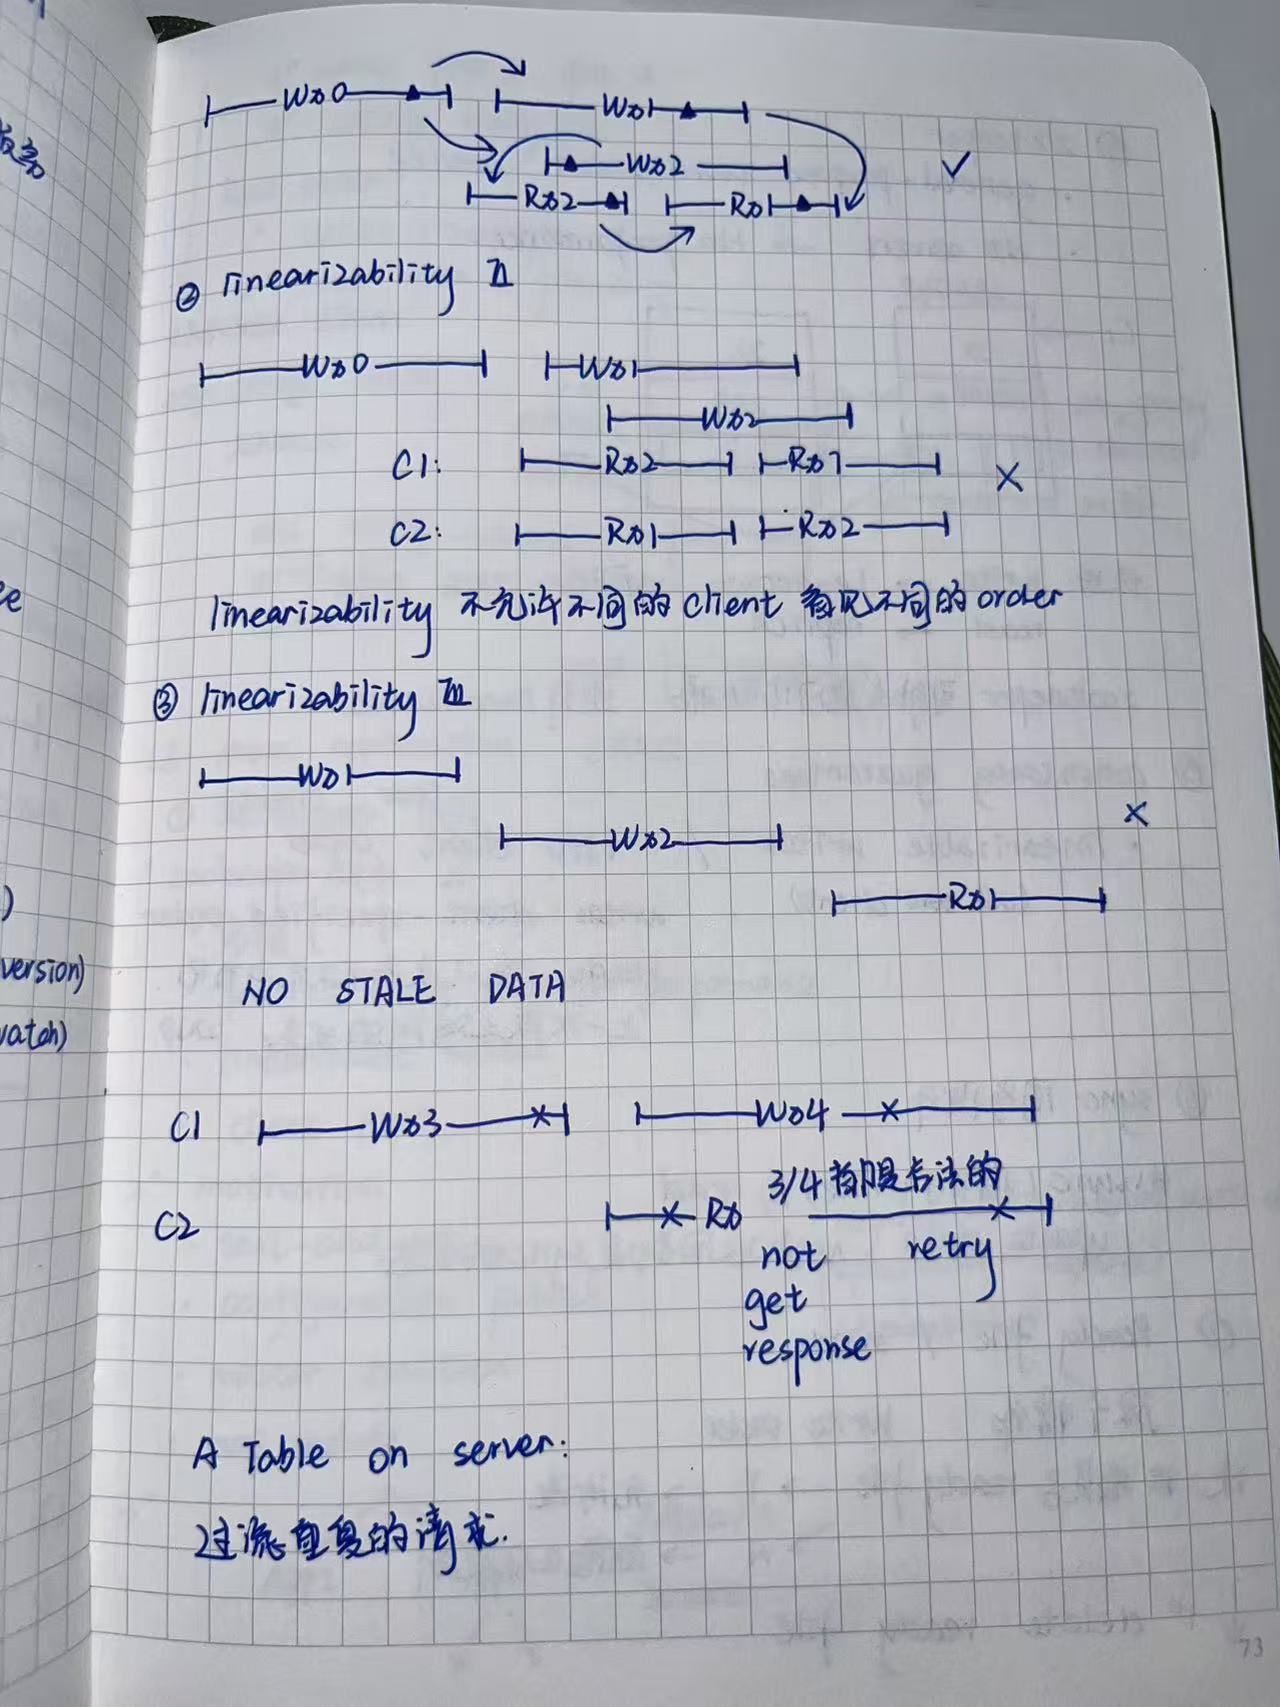 Wx0 Wx1
Wx2 ✓
Rx2 Rx1
② linearizability II
Wx0 Wx1
Wx2
C1: Rx2 Rx1 ×
C2: Rx1 Rx2
linearizability 不允许不同的 client 看见不同的 order
③ linearizability III
Wx1
Wx2 ×
Rx1
NO STALE DATA
C1 Wx3 Wx4
3/4 都是合法的
C2 Rx
not retry
get
response
A Table on server:
过滤重复的请求.
version)
watch)
73